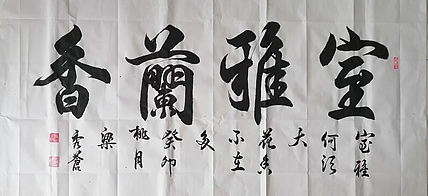 室雅蘭香
室雅
何須
大
花香
不在
多
癸卯
桃月